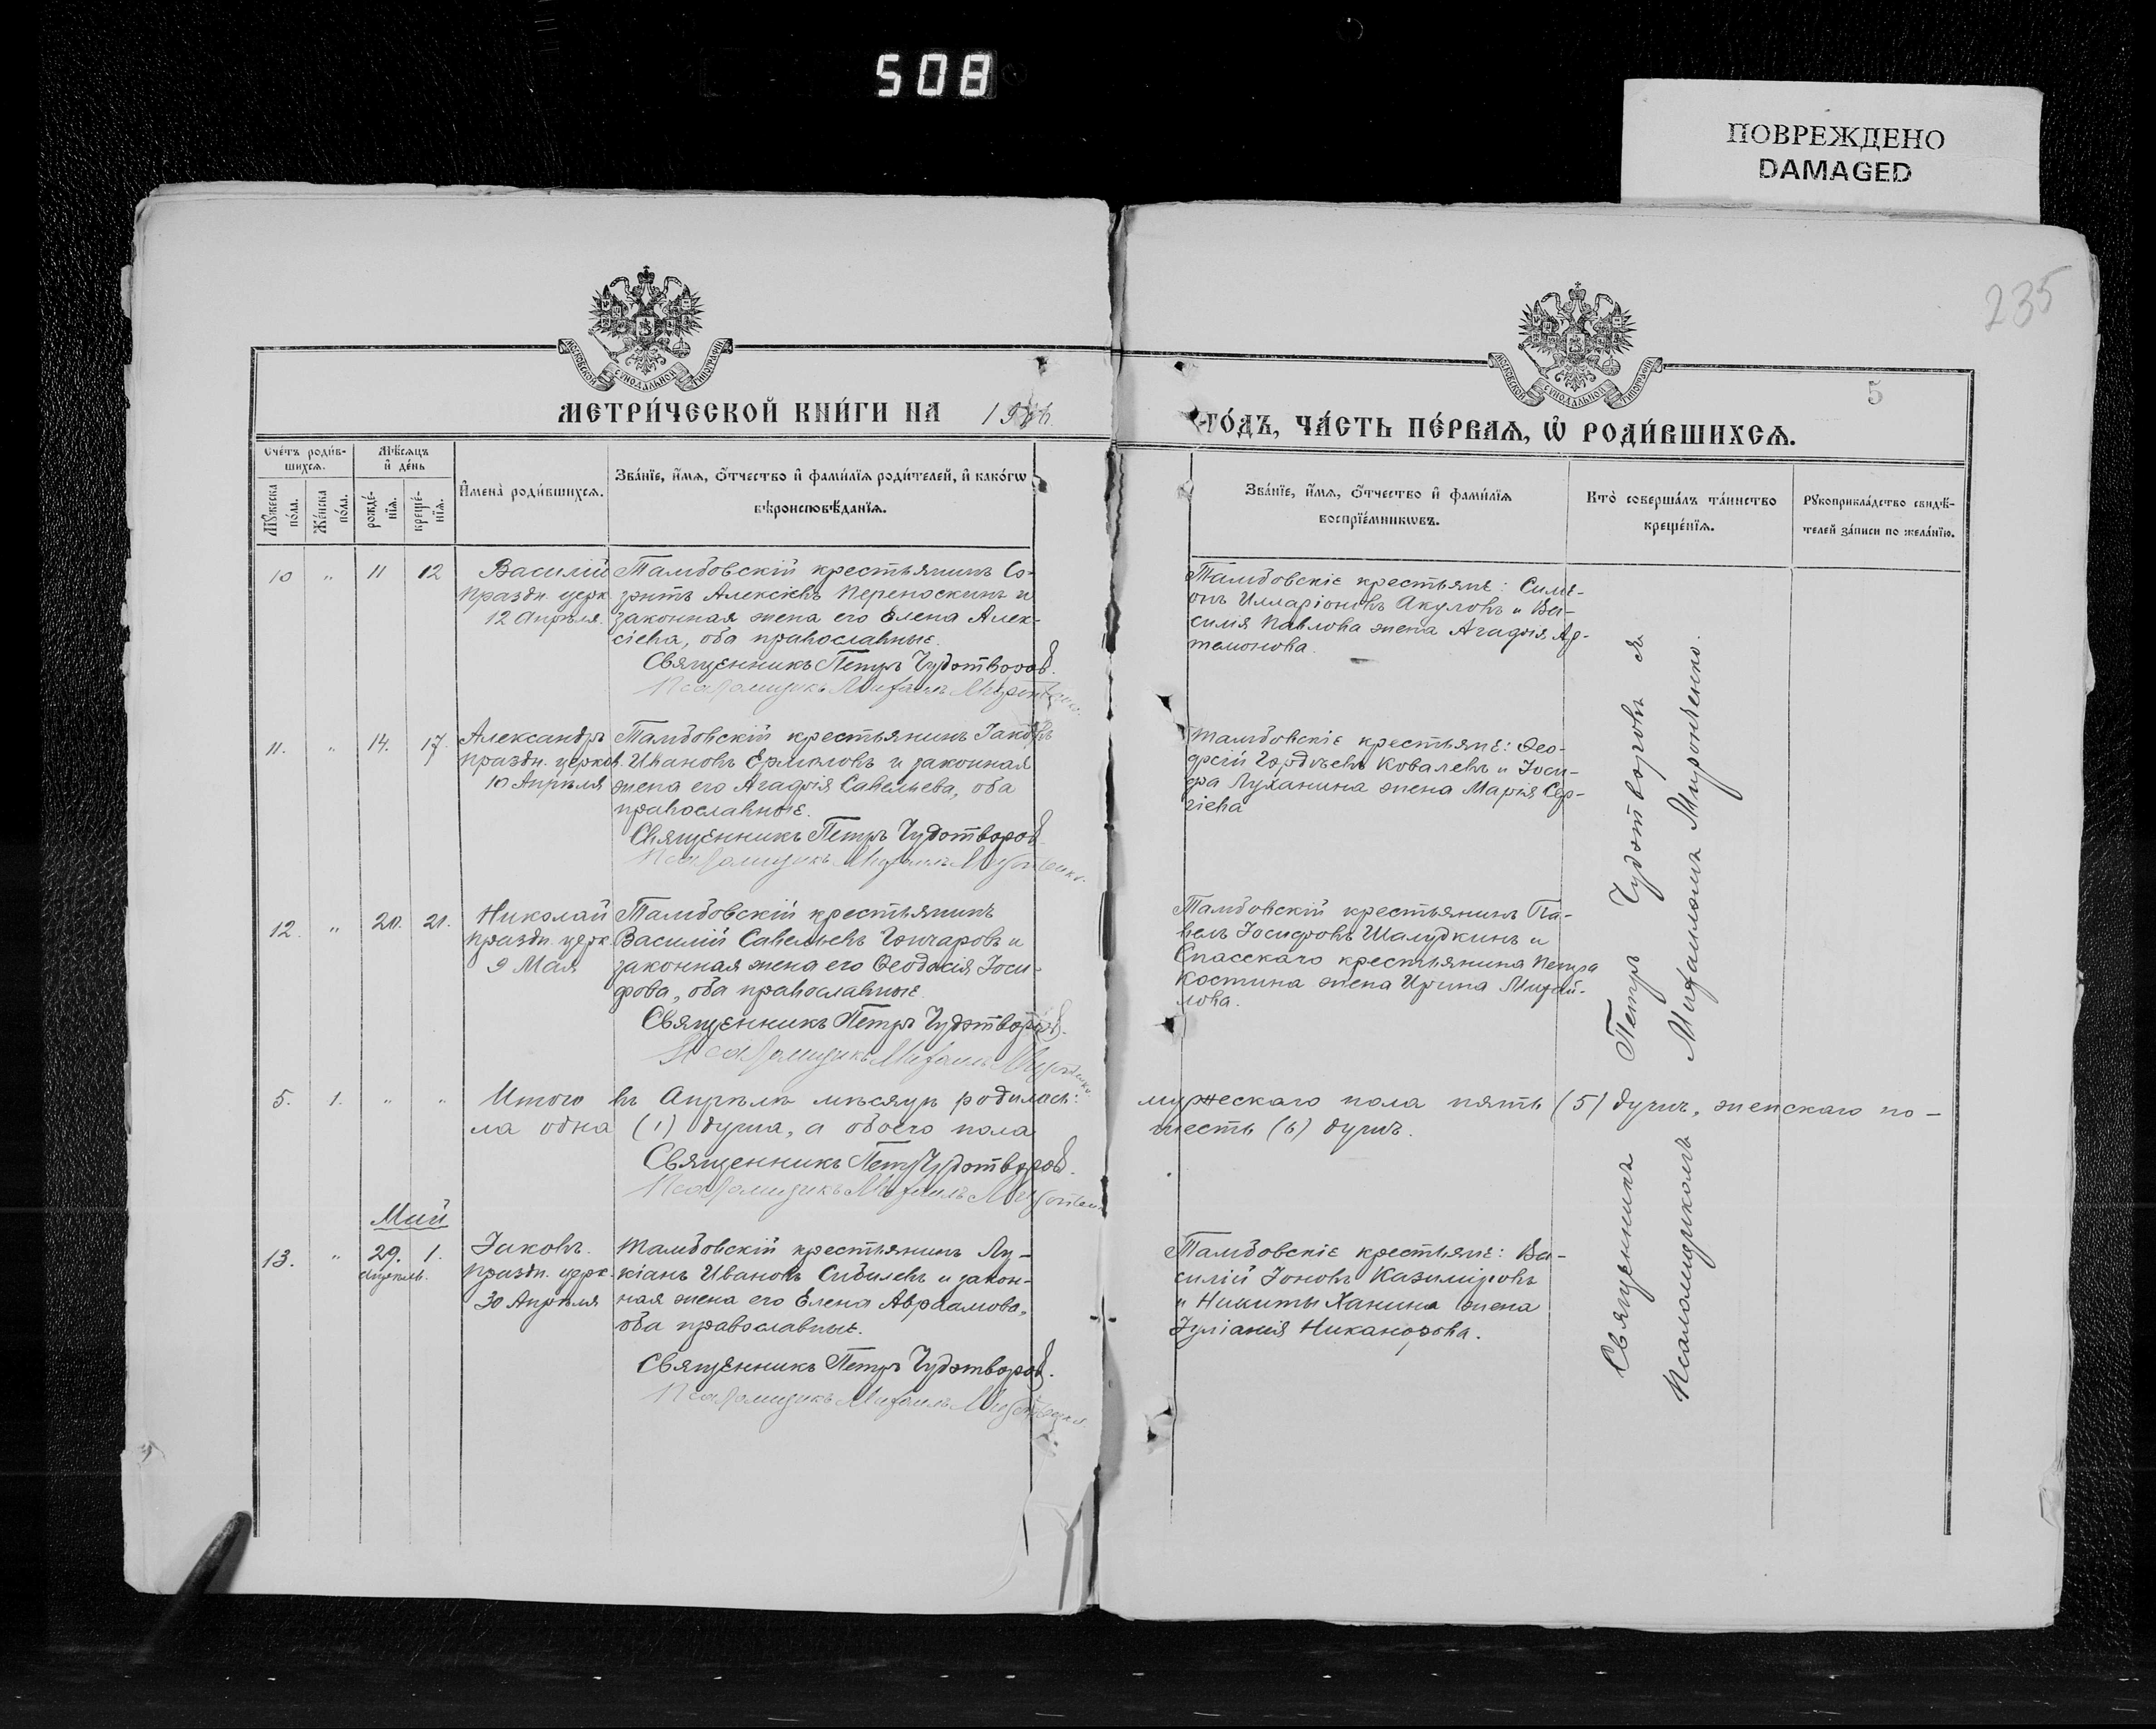 508
ПОВРЕЖДЕНО
DAMAGED
235
5
МОСКОВСКОЙ СѴНОДАЛЬНОЙ ТИПОГРАФІИ
МОСКОВСКОЙ СѴНОДАЛЬНОЙ ТИПОГРАФІИ
МЕТРИ́ЧЕСКОЙ КНИ́ГИ НА
ГО́ДЪ, ЧА́СТЬ ПЕ́РВАЯ, Ѡ҆ РОДИ́ВШИХСЯ.
Сче́тъ роди́в-
шихся.
Мѣ́сяцъ
и҆ де́нь
Мꙋ́жеска
по́ла.
Же́нска
по́ла.
рожде́-
нїя.
креще́-
нїя.
И҆мена̀ роди́вшихся.
Зва́нїе, и҆́мя, ѻ҆́тчество и҆ фами́лїя роди́телей, и҆ како́гѡ
вѣроисповѣ́данїя.
Зва́нїе, и҆́мя, ѻ҆́тчество и҆ фами́лїя
воспрїе́мникѡвъ.
Кто̀ соверша́лъ та́инство
креще́нїя.
Рꙋкоприкла́дство свидѣ́-
телей за́писи по жела́нїю.
10 " 11 12
Василій
Праздн. церк.
12 Апрѣля.
Тамбовскій крестьянинъ Со-
зонтъ Алексіевъ Переноскинъ и
законная жена его Елена Алек-
сіева, оба православные.
Священникъ Петръ Чудотворовъ.
Псаломщикъ Михаилъ Мироненко.
Тамбовскіе крестьяне: Симе-
онъ Илларіоновъ Акуловъ и Ва-
силія Павлова жена Агафія Ар-
темонова.
11. " 14. 17.
Александръ
праздн. церков.
10 Апрѣля
Тамбовскій крестьянинъ Іаковъ
Ивановъ Ермоловъ и законная
жена его Агафія Савельева, оба
православные.
Священникъ Петръ Чудотворовъ.
Псаломщикъ Михаилъ Мироненко.
Тамбовскіе крестьяне: Ѳео-
філ Гордѣевъ Ковалевъ и Іоси-
фа Луханина жена Марія Сер-
гіева
12. " 20. 21.
Николай
Праздн. церк.
9 Мая
Тамбовскій крестьянинъ
Василій Савельевъ Гончаровъ и
законная жена его Ѳеодосія Іоси-
фова, оба православные.
Священникъ Петръ Чудотворовъ.
Псаломщикъ Михаилъ Мироненко.
Тамбовскій крестьянинъ Па-
велъ Іосифовъ Шалудкинъ и
Спасскаго крестьянина Петра
Костина жена Ирина Михай-
лова.
5. 1. " "
Итого въ Апрѣлѣ мѣсяцѣ родилось: мужескаго пола пять (5) душъ, женскаго по-
ла одна (1) душа, а обоего пола шесть (6) душъ.
Священникъ Петръ Чудотворовъ.
Псаломщикъ Михаилъ Мироненко
Май
13. " 29. 1.
апрѣль.
Іаковъ.
Праздн. церк.
30 Апрѣля
Тамбовскій крестьянинъ Лу-
кіанъ Ивановъ Сибилевъ и закон-
ная жена его Елена Авраамова,
оба православные.
Священникъ Петръ Чудотворовъ.
Псаломщикъ Михаилъ Мироненко.
Тамбовскіе крестьяне: Ва-
силій Іоновъ Казиміровъ
и Никиты Ханина жена
Іуліанія Никанорова.
Священникъ Петръ Чудотворовъ съ
Псаломщикомъ Михаиломъ Мироненко.